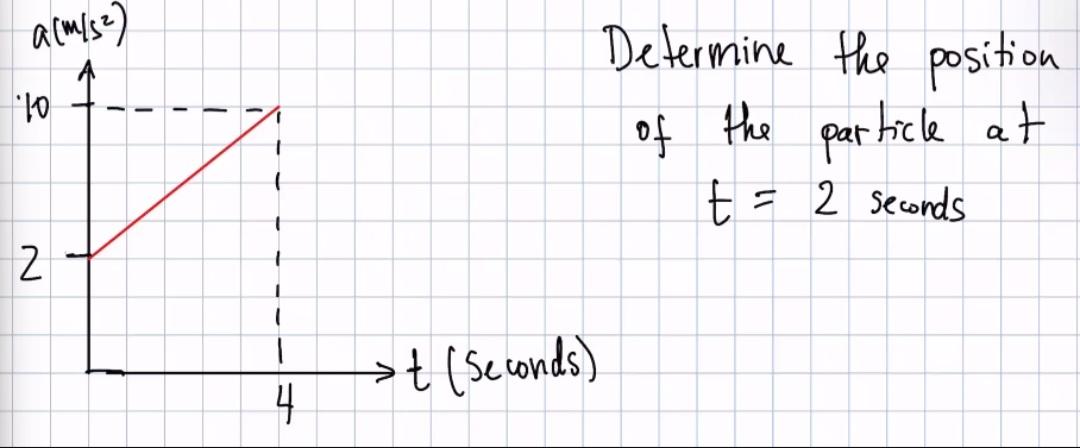 a(m/s²)
10
2
4
t (seconds)
Determine the position
of the particle at
t = 2 seconds